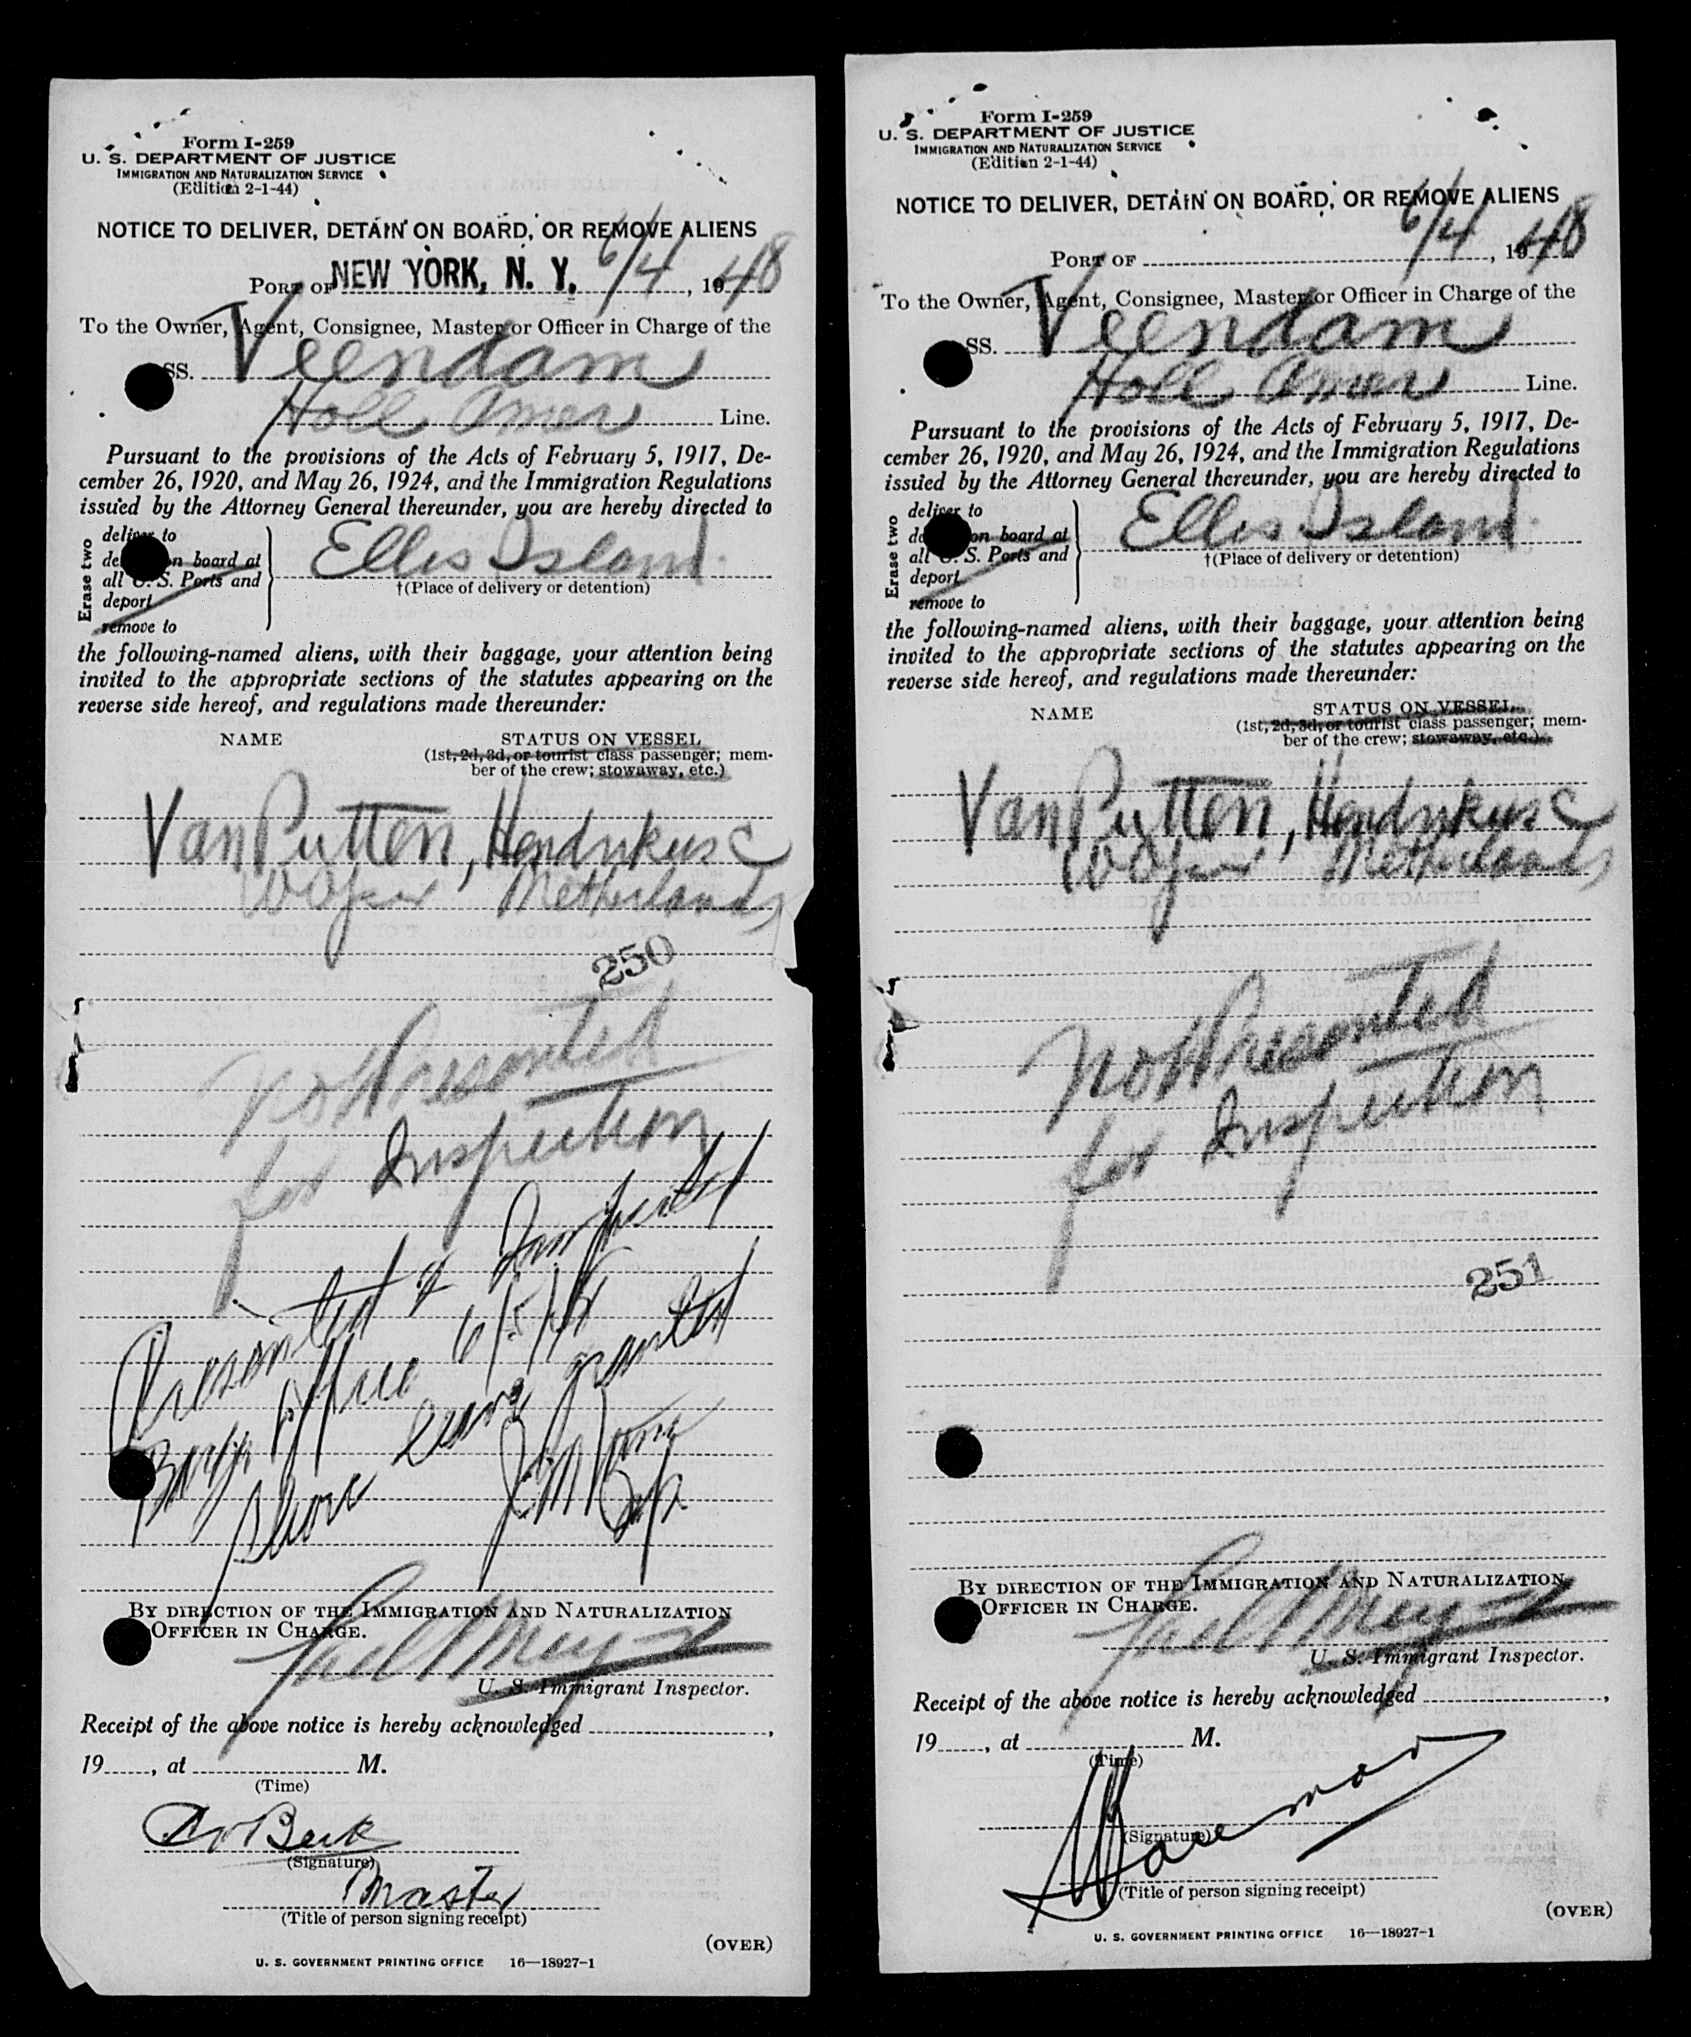 Form I-259
U. S. DEPARTMENT OF JUSTICE
IMMIGRATION AND NATURALIZATION SERVICE
(Edition 2-1-44)
NOTICE TO DELIVER, DETAIN ON BOARD, OR REMOVE ALIENS
PORT OF NEW YORK, N. Y. 6/4, 1948
To the Owner, Agent, Consignee, Master or Officer in Charge of the
SS. Veendam
Holl Amer Line.
Pursuant to the provisions of the Acts of February 5, 1917, De-
cember 26, 1920, and May 26, 1924, and the Immigration Regulations
issued by the Attorney General thereunder, you are hereby directed to
Erase two
deliver to
on board at
all U. S. Ports and
deport
remove to
Ellis Island
†(Place of delivery or detention)
the following-named aliens, with their baggage, your attention being
invited to the appropriate sections of the statutes appearing on the
reverse side hereof, and regulations made thereunder:
NAME STATUS ON VESSEL
(1st, 2d, 3d, or tourist class passenger; mem-
ber of the crew; stowaway, etc.)
Van Putten, Hendrikus C
Netherlands
250
Not Presented
for Inspection
Presented & Inspected
Barge Office 6/5/48
Shore leave granted
Insp
BY DIRECTION OF THE IMMIGRATION AND NATURALIZATION
OFFICER IN CHARGE.
U. S. Immigrant Inspector.
Receipt of the above notice is hereby acknowledged
19, at M.
(Time)
(Signature)
Master
(Title of person signing receipt)
(OVER)
U. S. GOVERNMENT PRINTING OFFICE 16—18927-1
Form I-259
U. S. DEPARTMENT OF JUSTICE
IMMIGRATION AND NATURALIZATION SERVICE
(Edition 2-1-44)
NOTICE TO DELIVER, DETAIN ON BOARD, OR REMOVE ALIENS
PORT OF 6/4, 1948
To the Owner, Agent, Consignee, Master or Officer in Charge of the
SS. Veendam
Holl Amer Line.
Pursuant to the provisions of the Acts of February 5, 1917, De-
cember 26, 1920, and May 26, 1924, and the Immigration Regulations
issued by the Attorney General thereunder, you are hereby directed to
Erase two
deliver to
on board at
all U. S. Ports and
deport
remove to
Ellis Island
†(Place of delivery or detention)
the following-named aliens, with their baggage, your attention being
invited to the appropriate sections of the statutes appearing on the
reverse side hereof, and regulations made thereunder:
NAME STATUS ON VESSEL
(1st, 2d, 3d, or tourist class passenger; mem-
ber of the crew; stowaway, etc.)
Van Putten, Hendrikus C
Netherlands
Not Presented
for Inspection
251
BY DIRECTION OF THE IMMIGRATION AND NATURALIZATION
OFFICER IN CHARGE.
U. S. Immigrant Inspector.
Receipt of the above notice is hereby acknowledged ,
19, at M.
(Time)
(Signature)
(Title of person signing receipt)
(OVER)
U. S. GOVERNMENT PRINTING OFFICE 16—18927-1